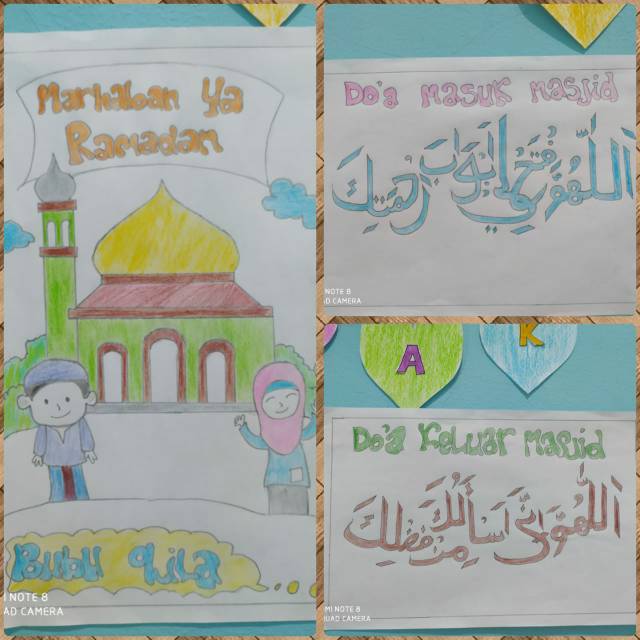 Marhaban Ya
Ramadan
Bubu Qila
MI NOTE 8
UAD CAMERA
Do'a masuk masjid
اَللّٰهُمَّ افْتَحْ لِيْ اَبْوَابَ رَحْمَتِكَ
NOTE 8
AD CAMERA
A K
Do'a Keluar masjid
اَللّٰهُمَّ اِنِّى اَسْأَلُكَ مِنْ فَضْلِكَ
MI NOTE 8
UAD CAMERA